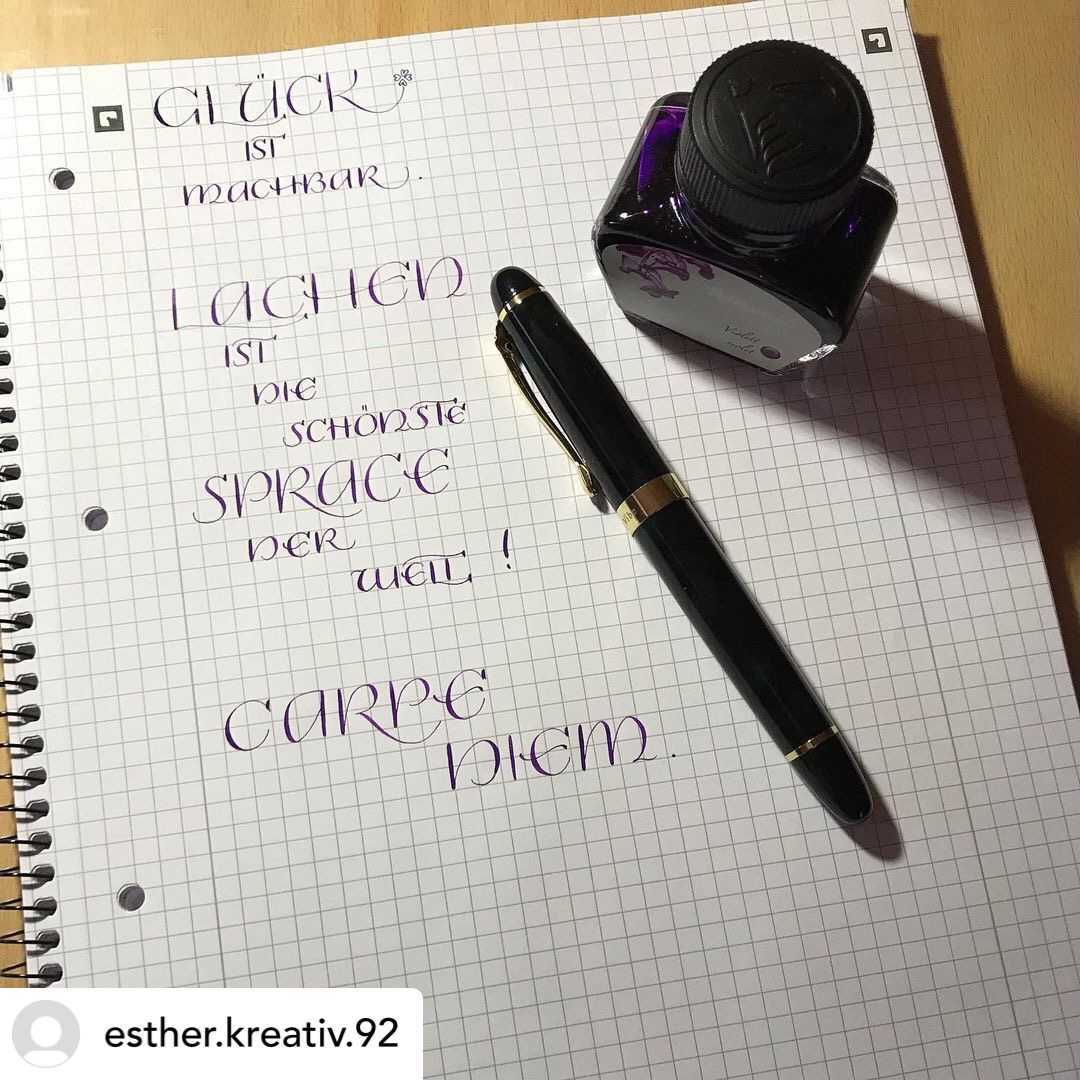 GLÜCK
IST
MACHBAR.
LACHEN
IST
DIE
SCHÖNSTE
SPRACE
DER
WELT!
CARPE
DIEM.
Violett
violet
esther.kreativ.92